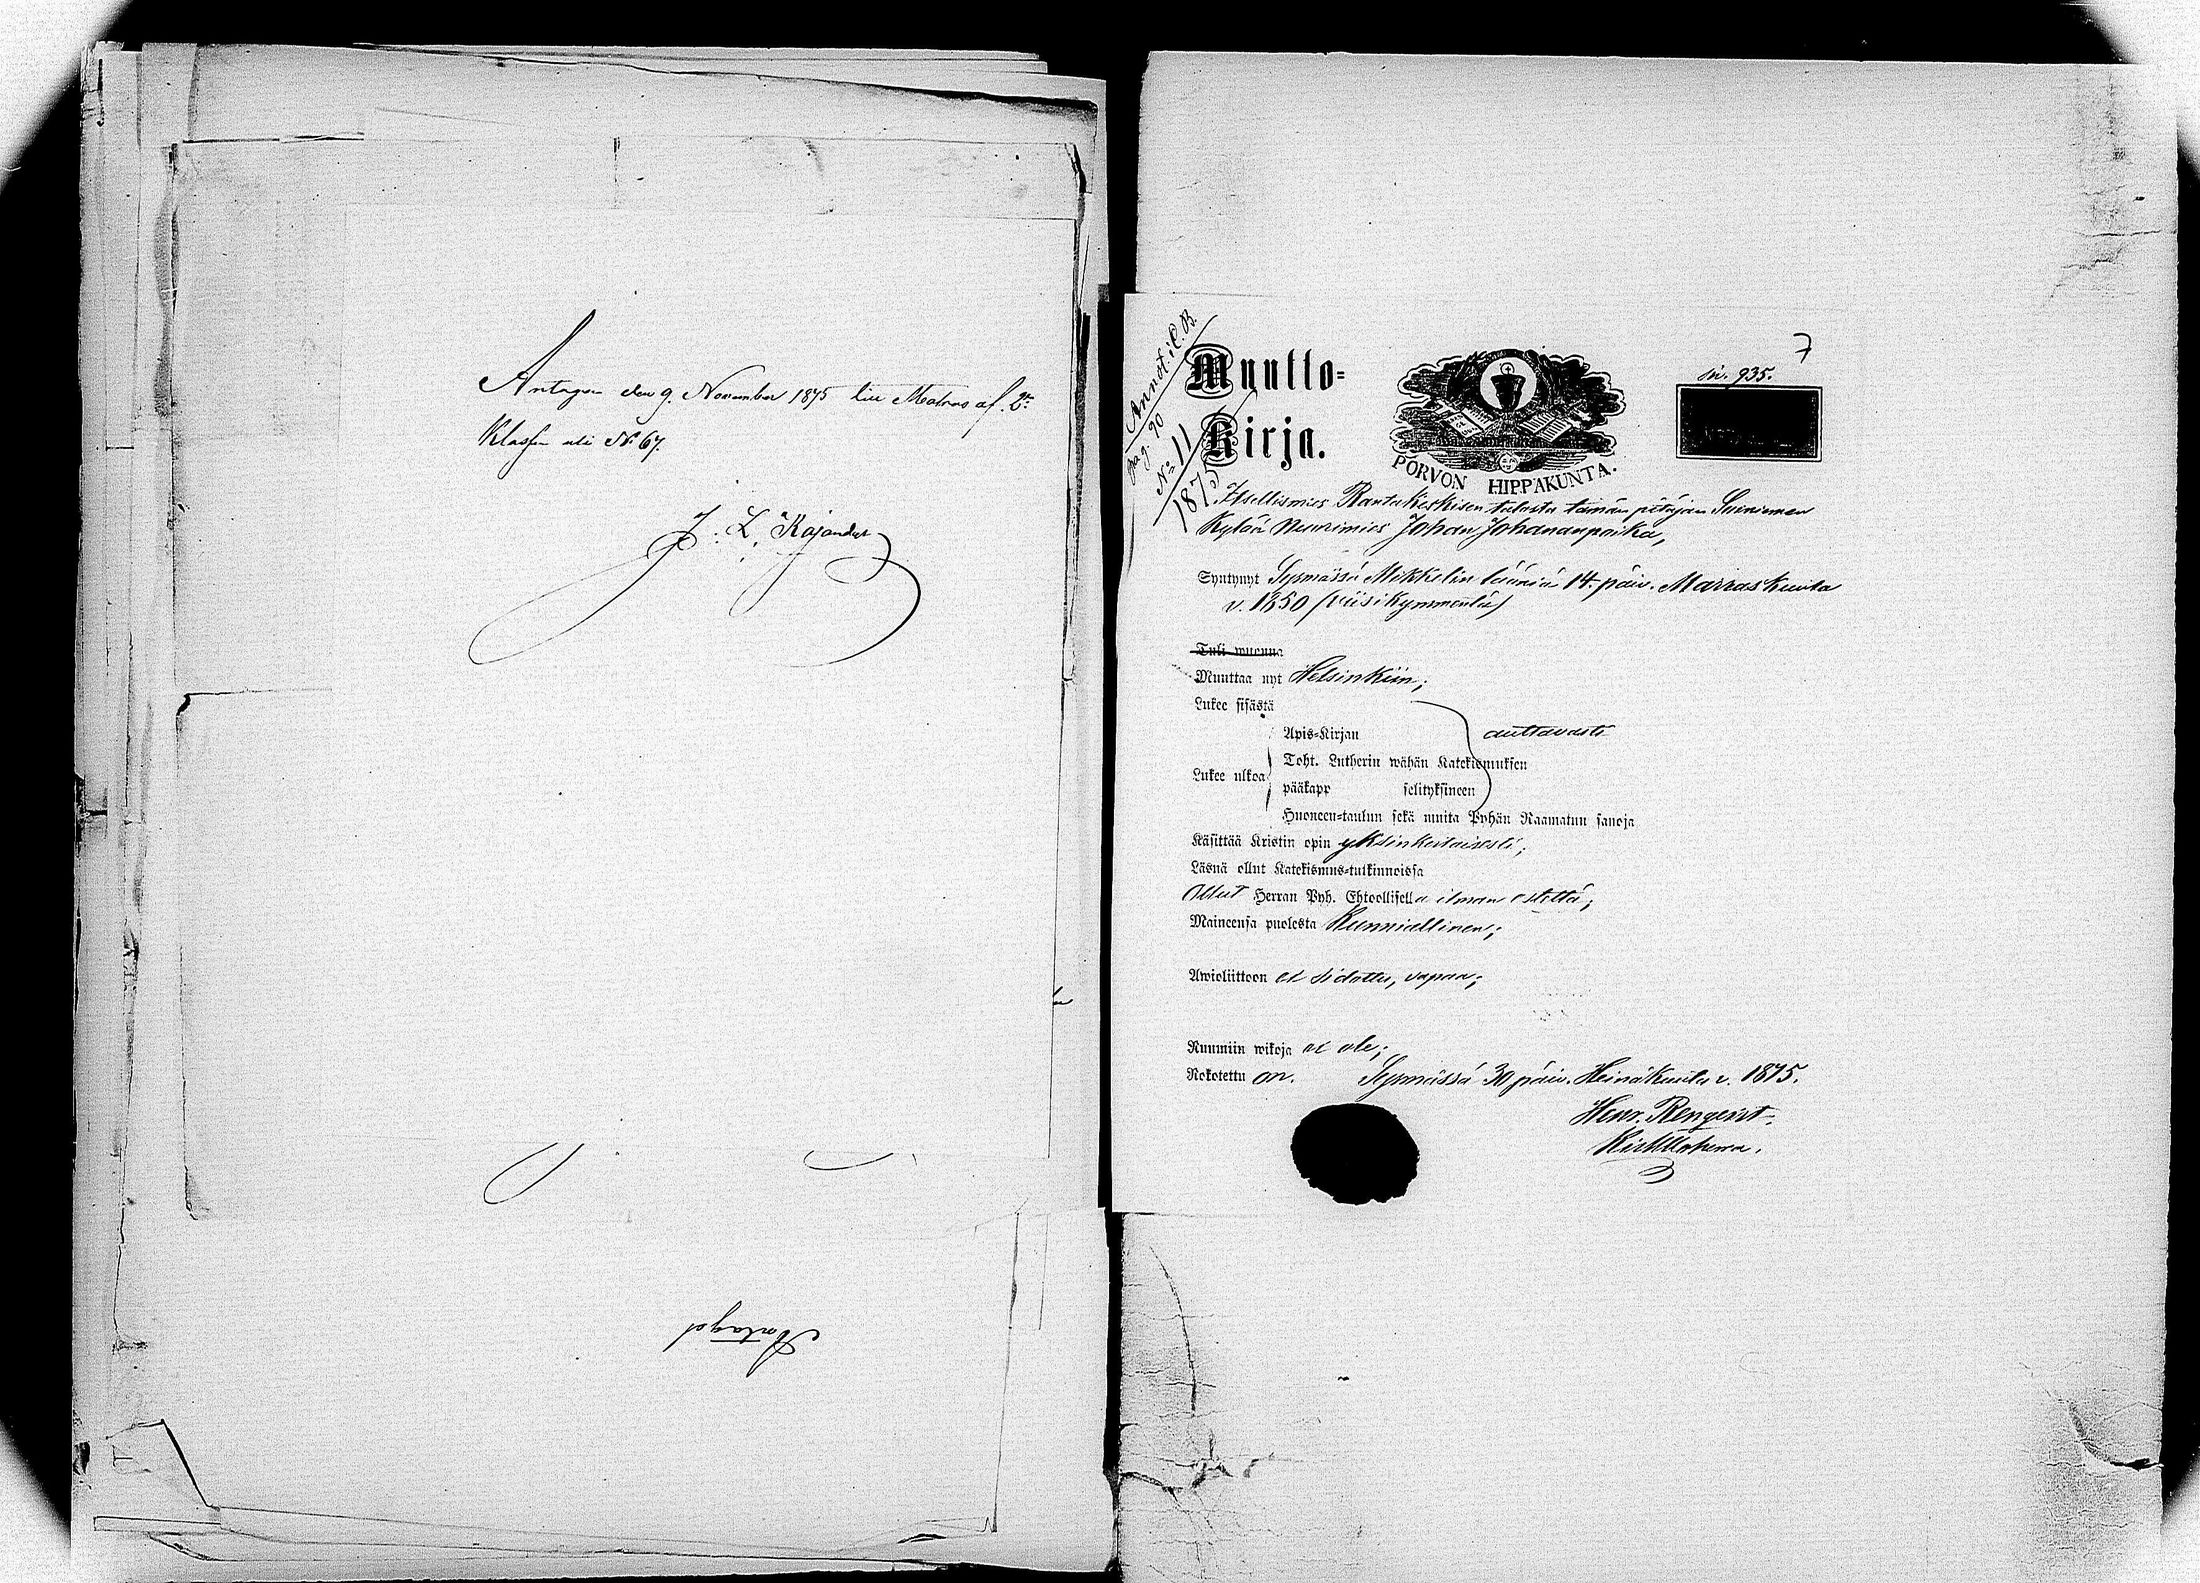 Antagen den 9. November 1875 till Matros af 2:
Klassen uti No 67.
J. L. Kajander
Antagit
Annot. i C. B.
pag. 90
No 11
1875
7
siv. 935.
Muutto-
Kirja.
PORVON HIPPAKUNTA.
Itsellismies Rantakeskisen talosta tämän pitäjän
Kylää Nuorimies Johan Johananpoika,
Syntynyt Sysmässä Mikkelin lääniä 14. päiv. Marraskuuta
v. 1850 (viisikymmentä)
Tuli wuonna
Muuttaa nyt Helsinkiin;
Lukee sisästä
Apis-Kirjan auttavasti
Toht. Lutherin wähän Katekismuksen
Lukee ulkoa
pääkapp selityksineen
Huoneen-taulun sekä muita Pyhän Raamatun sanoja
Käsittää Kristin opin yksinkertaisesti;
Läsnä ollut Katekismus-tutkinnoissa
Ollut Herran Pyh. Ehtoollisella ilman estettä;
Maineensa puolesta Kunniallinen;
Awioliittoon ei sidottu, vapaa;
Ruumiin wikoja ei ole;
Rokotettu on. Sysmässä 30 päiv. Heinäkuuta v. 1875.
Henr. Renqvist.
Kirkkoherra.